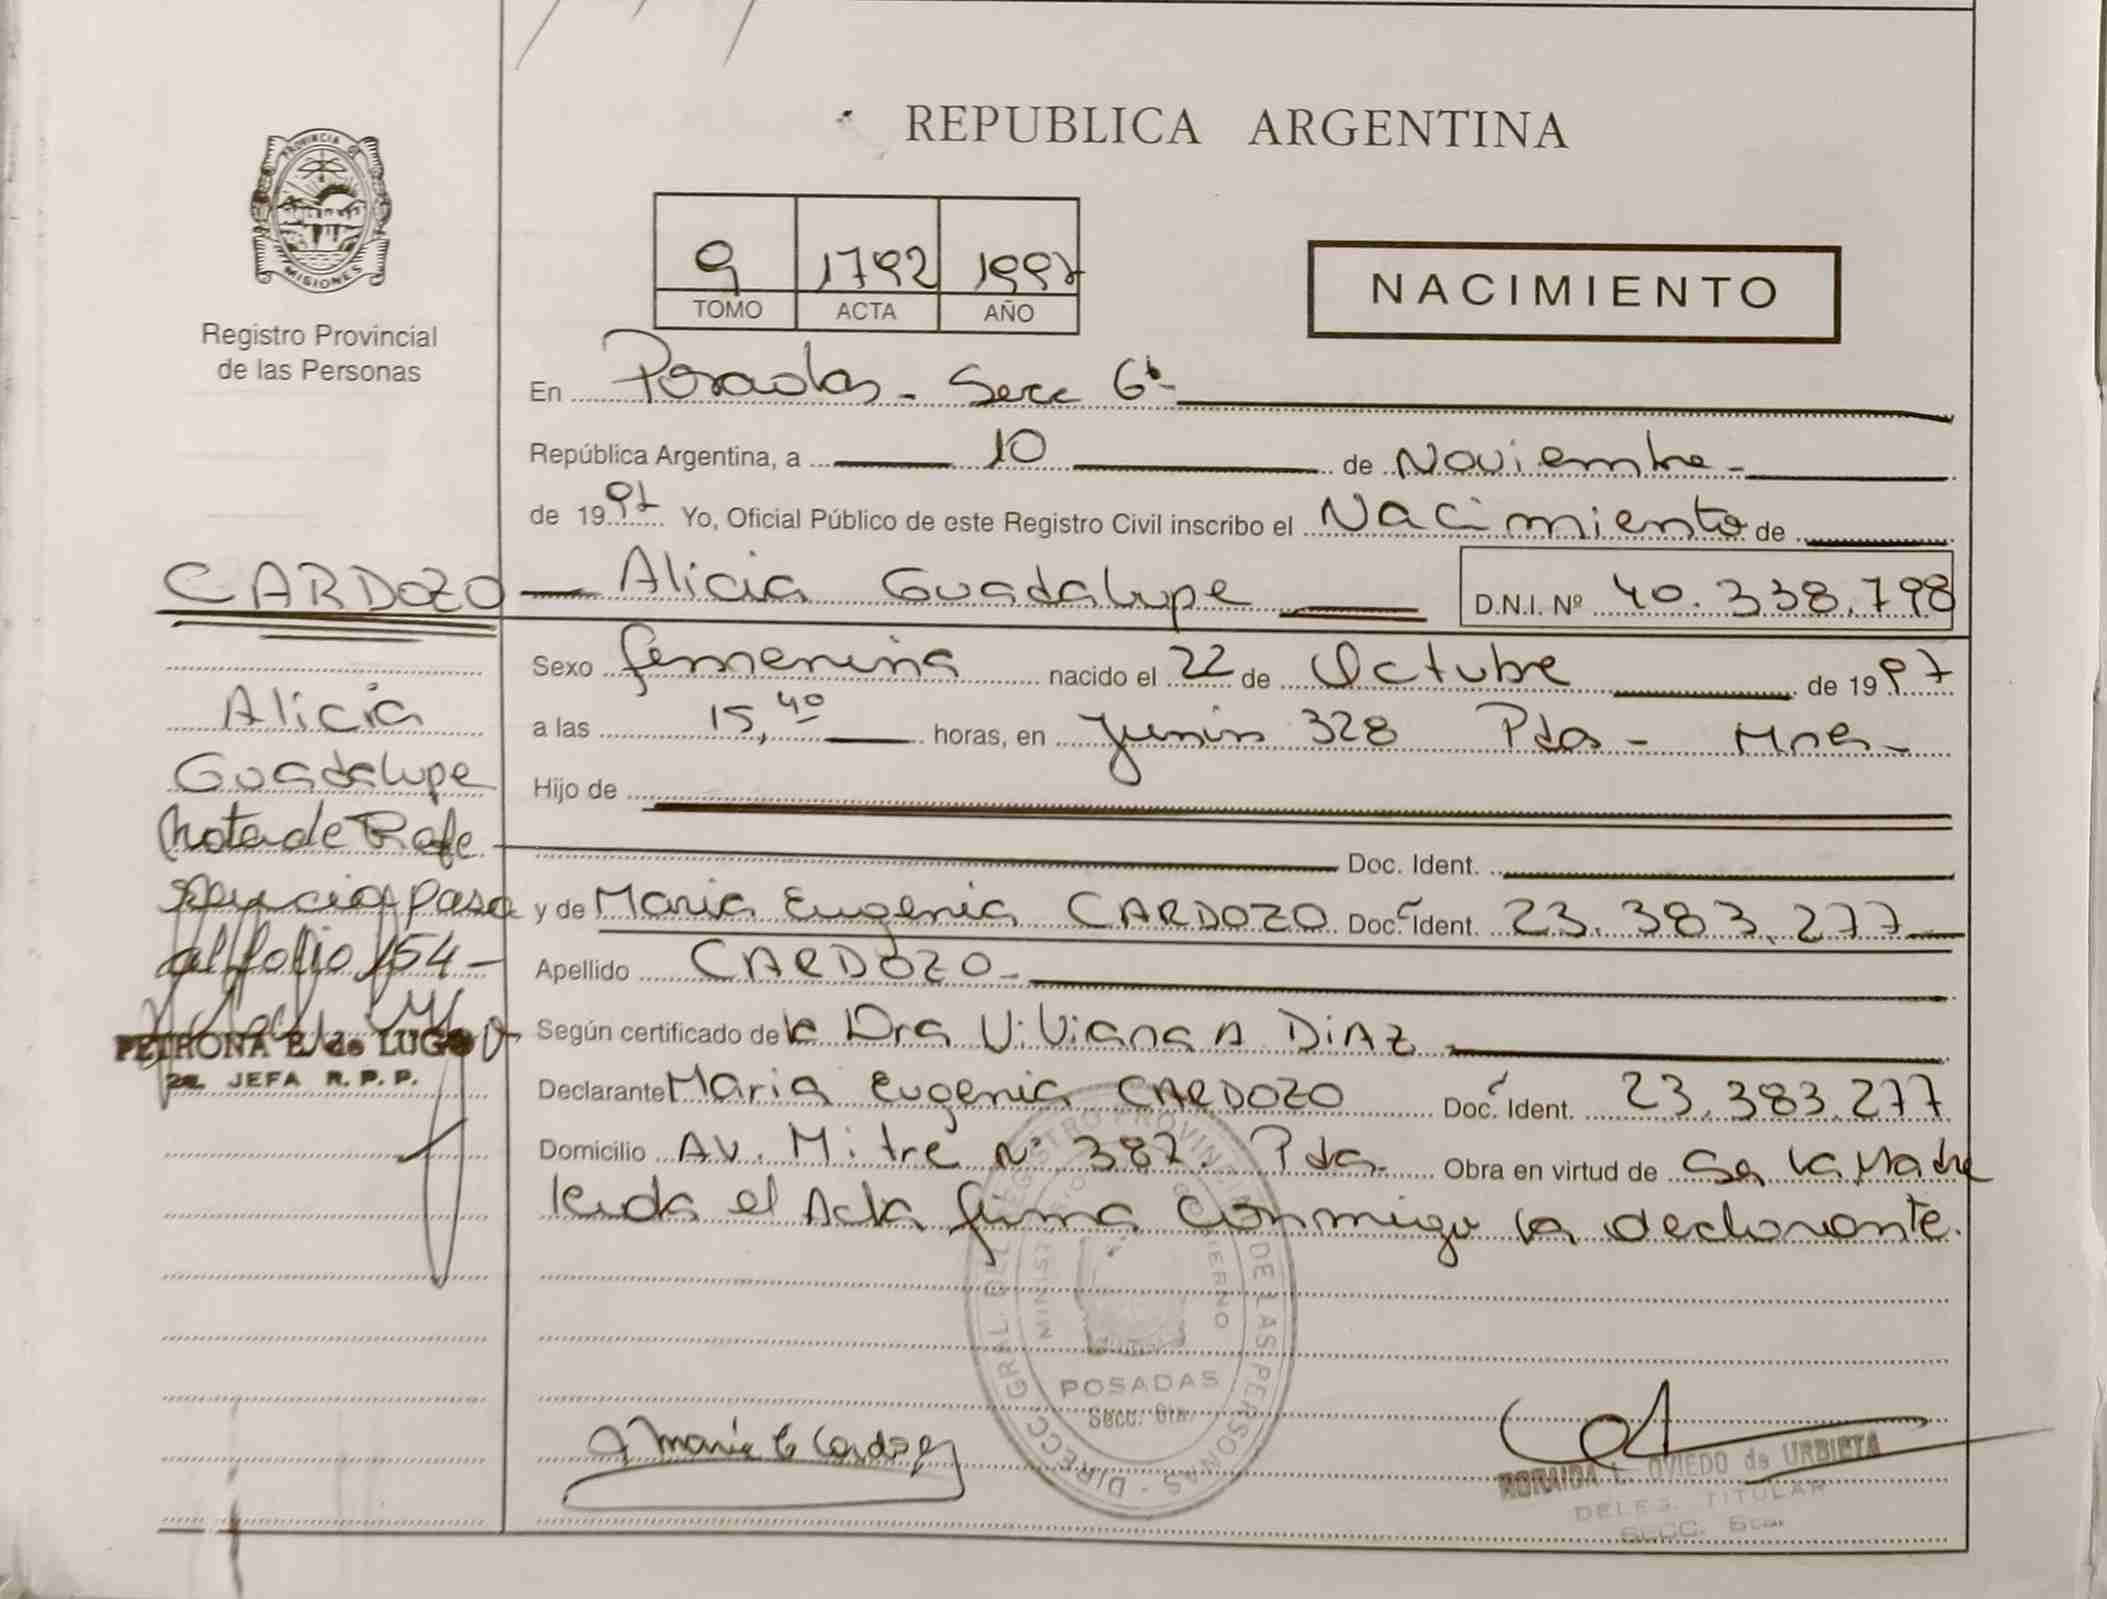 REPUBLICA ARGENTINA
PROVINCIA DE
MISIONES
Registro Provincial
de las Personas
9 1792 1997
TOMO ACTA AÑO
NACIMIENTO
En Posadas - Secc 6ª
República Argentina, a 10 de Noviembre
de 1997 Yo, Oficial Público de este Registro Civil inscribo el Nacimiento de
CARDOZO Alicia Guadalupe D.N.I. Nº 40.338.798
Sexo femenina nacido el 22 de Octubre de 1997
a las 15,40 horas, en Junin 328 Pdas - Mnes -
Hijo de
Doc. Ident.
y de Maria Eugenia CARDOZO Doc. Ident. 23.383.277
Apellido CARDOZO
Según certificado de la Dra Viviana A DiAZ
Declarante Maria Eugenia CARDOZO Doc. Ident. 23.383.277
Domicilio Av. Mitre Nº 387. Pdas. Obra en virtud de Se la Madre
leida el Acta firma conmigo la declarante.
Alicia
Guadalupe
Nota de Refe
rencia pasa
al folio 154 -
PETRONA E. de LUGO
2a. JEFA R.P.P.
DIRECC. GRAL. DEL REGISTRO PROVINCIAL DE LAS PERSONAS
MINISTERIO GOBIERNO
POSADAS
Secc. 6ta.
Maria E Cardozo
L. OVIEDO de URBIETA
DELEG. TITULAR
SECC. 6ta.